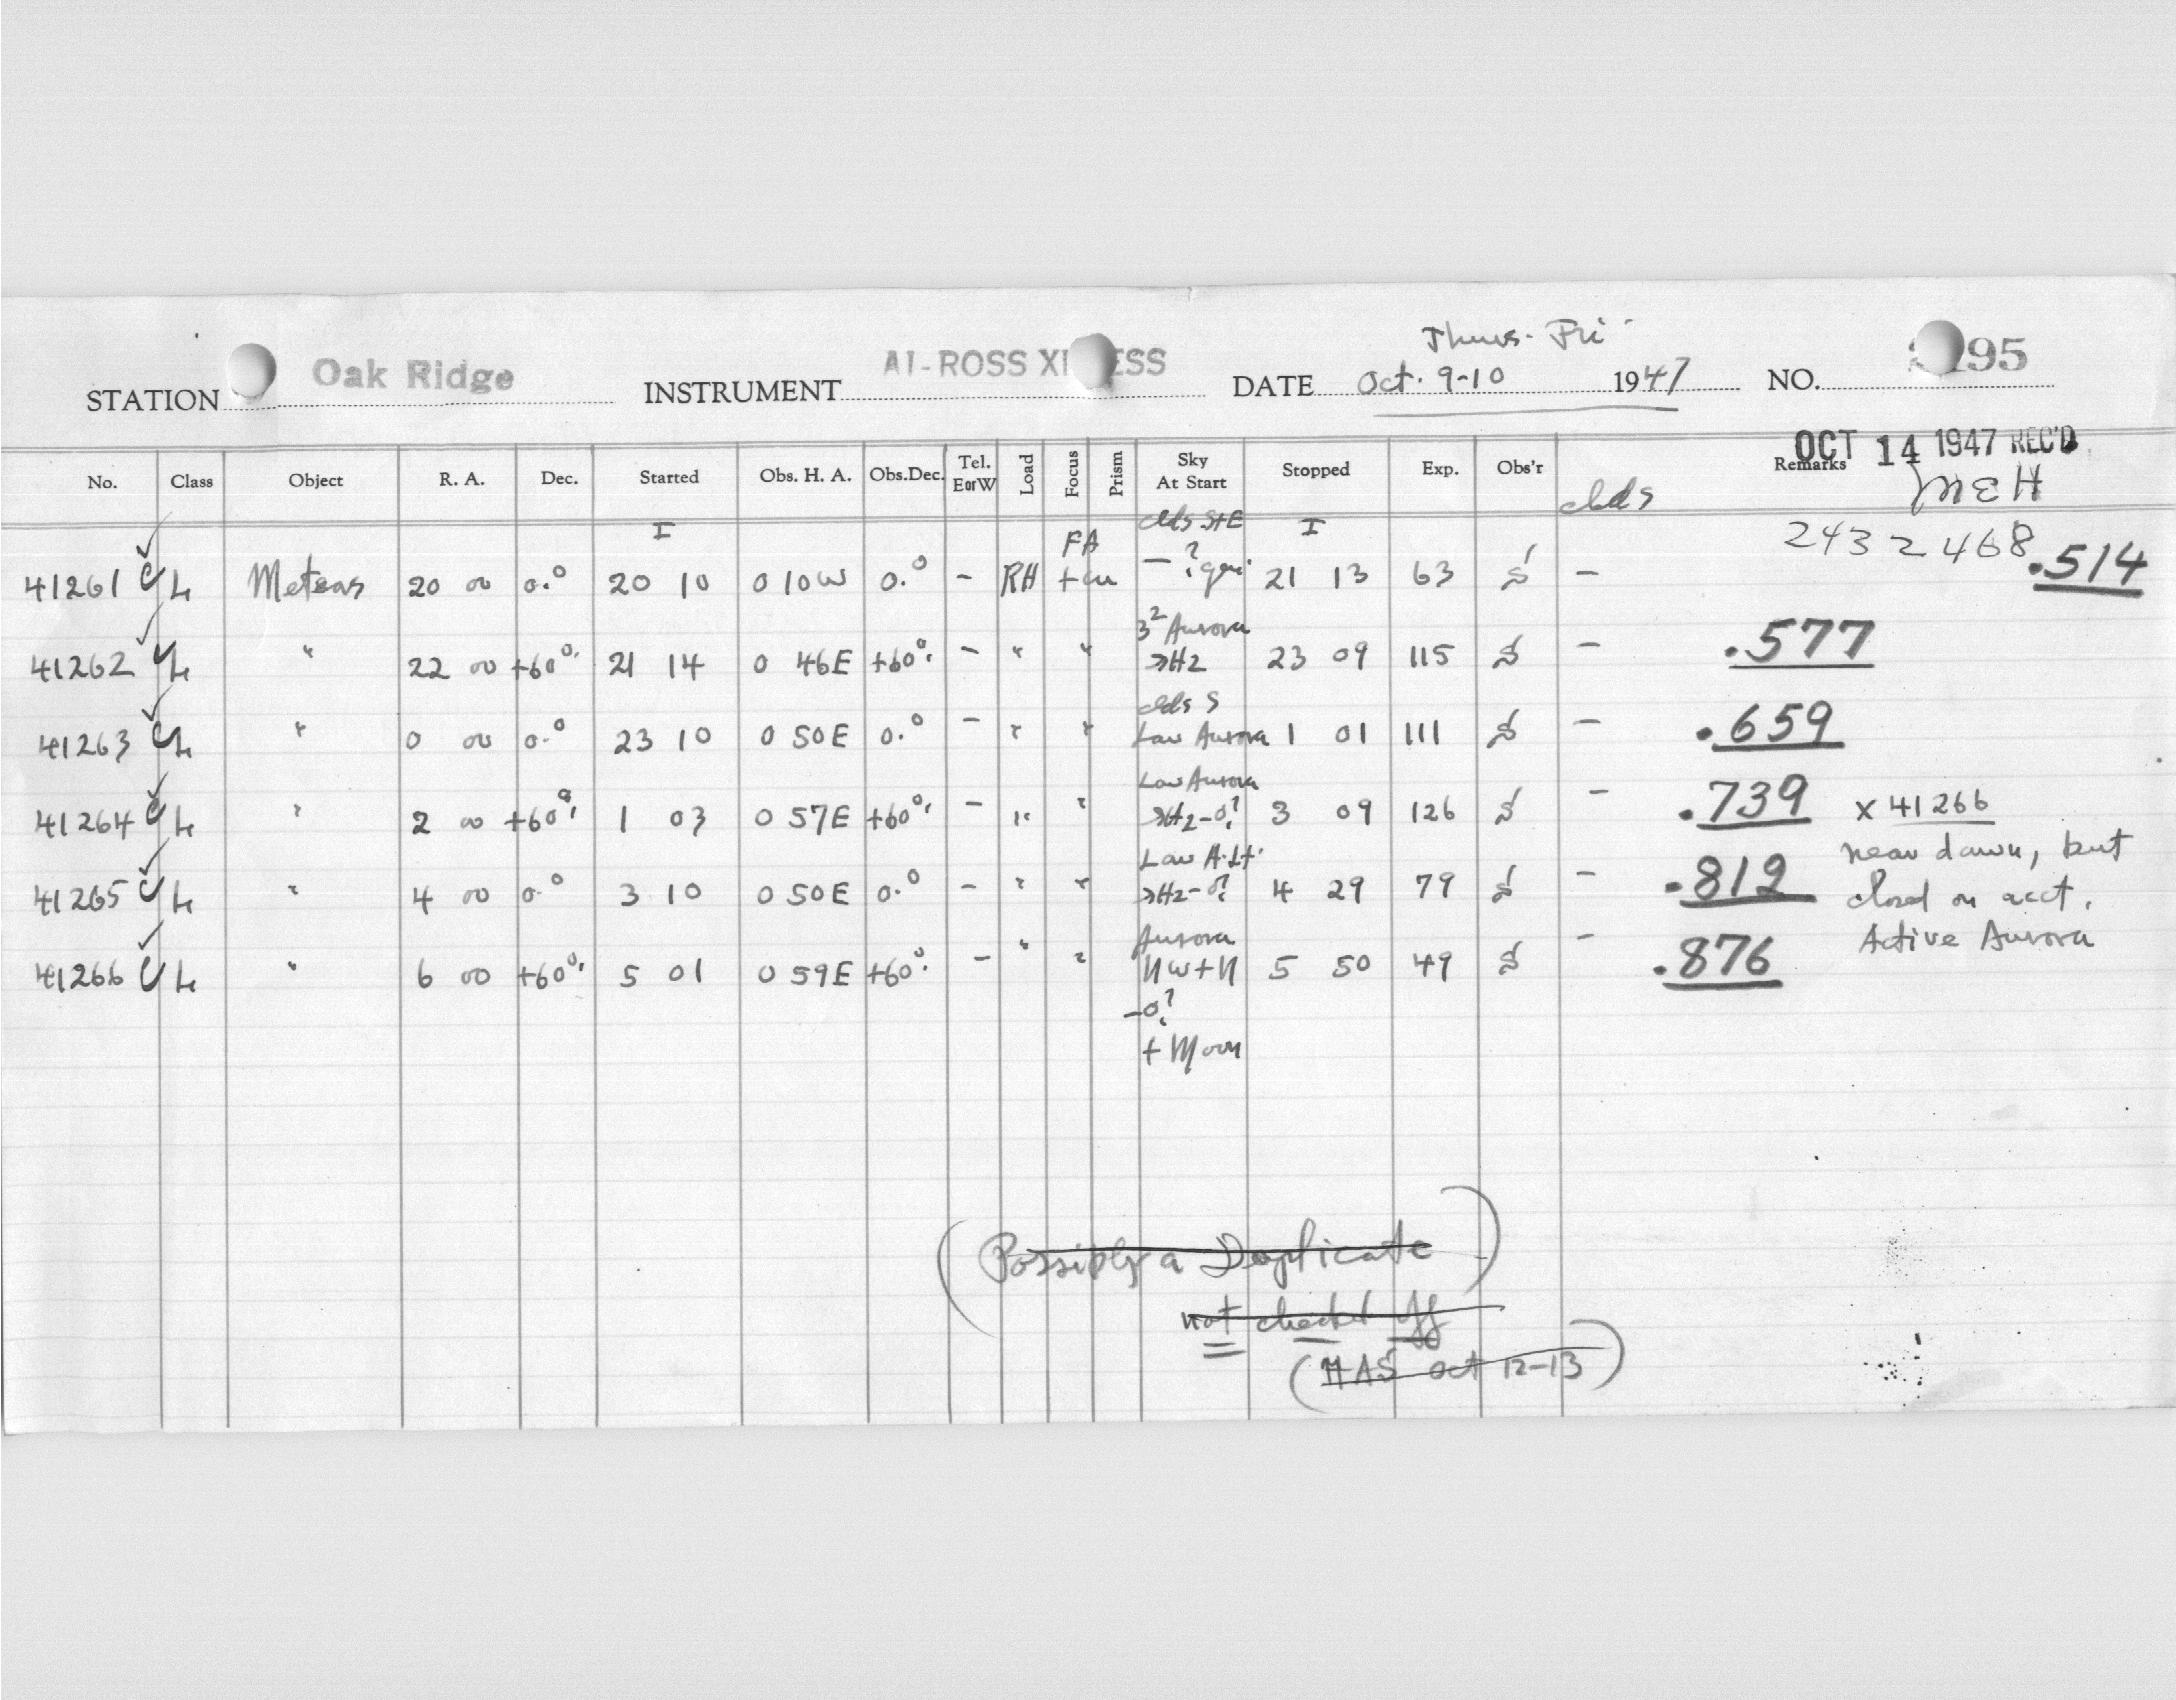 Thurs-Fri
STATION Oak Ridge INSTRUMENT AI-ROSS DATE Oct. 9-10 1947 NO. 95
OCT 14 1947 REC'D
No. Class Object R. A. Dec. Started Obs. H. A. Obs.Dec. Tel. EorW Load Focus Prism Sky At Start Stopped Exp. Obs'r Remarks
clds MEH
I clds S+E I 2432468
41261 L Meteors 20 00 0.° 20 10 0 10W 0.° - RH FA - ? 21 13 63 S - .514
3² Aurora
41262 L " 22 00 +60°. 21 14 0 46E +60°. - " " Hz 23 09 115 S - .577
clds S
41263 L " 0 00 0.° 23 10 0 50E 0.° - " " Low Aurora 1 01 111 S - .659
Low Aurora
41264 L " 2 00 +60°. 1 03 0 57E +60°. - " " Hz-0? 3 09 126 S - .739 x 41266
near dawn, but
41265 L " 4 00 0.° 3 10 0 50E 0.° - " " Hz-0? 4 29 79 S - .812 closed on acct.
Aurora Active Aurora
41266 L " 6 00 +60°. 5 01 0 59E +60°. - " " NW+N 5 50 49 S - .876
-0?
+ Moon
(Possibly a Duplicate)
not checked off
(HAS Oct 12-13)